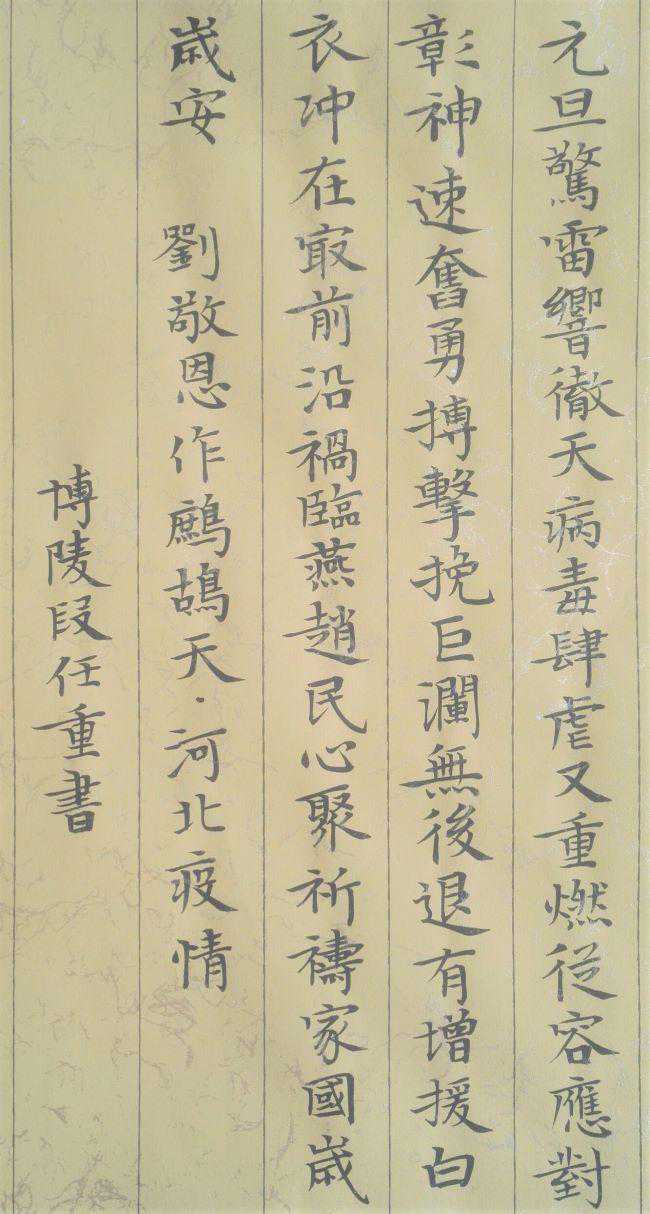 元旦驚雷響徹天病毒肆虐又重燃從容應對
彰神速奮勇搏擊挽巨瀾無後退有增援白
衣冲在最前沿禍臨燕趙民心聚祈禱家國歲
歲安 劉敬恩作鷓鴣天·河北疫情
博陵段任重書